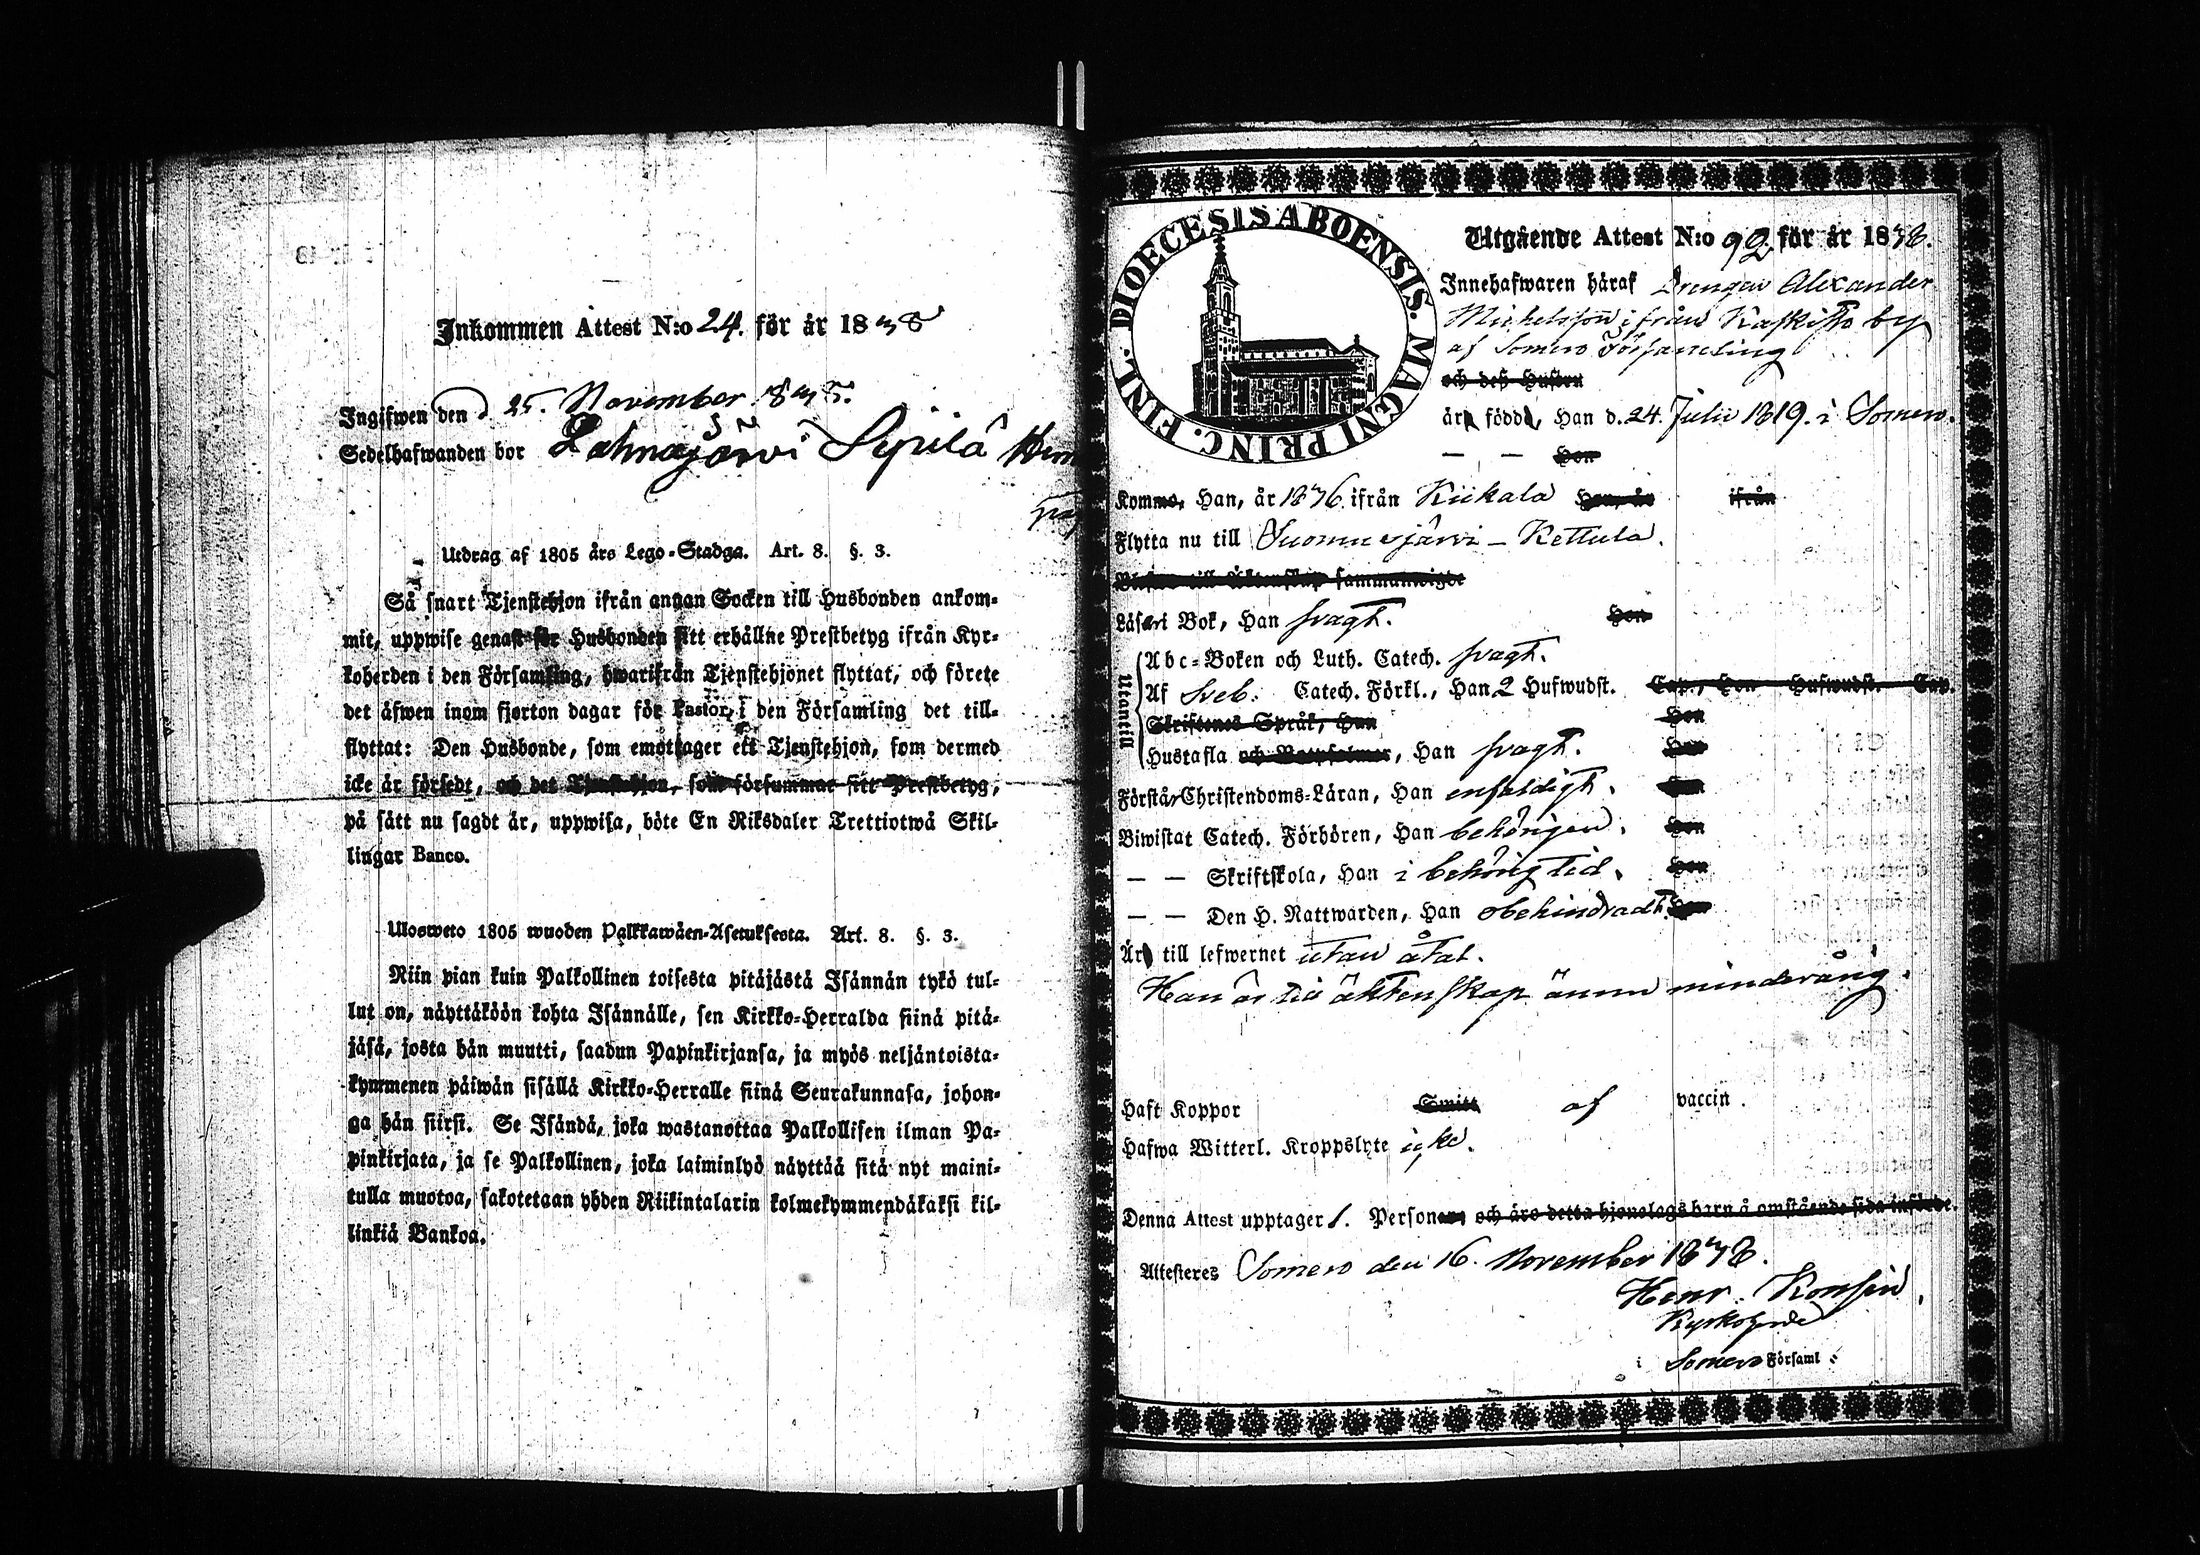 Inkommen Attest N:o 24. för år 1838
Ingifwen den d. 25. November 1838.
Sedelhafwanden bor Lahnajärvi Syrilä
Utdrag af 1805 års Lego-Stadga. Art. 8. §. 3.
Så snart Tjenstehjon ifrån annan Socken till Husbonden ankom-
mit, uppwise genast för Husbonden sitt erhållne Prestbetyg ifrån Kyr-
koherden i den Församling, hwarifrån Tjenstehjonet flyttat, och förete
det äfwen inom fjorton dagar för Pastor, i den Församling det till-
flyttat: Den Husbonde, som emottager ett Tjenstehjon, som dermed
icke är försedt, och det Tjenstehjon, som försummar sitt Prestbetyg,
på sätt nu sagdt är, uppwisa, böte En Riksdaler Trettiotwå Skil-
lingar Banco.
Ulosweto 1805 wuoden Palkkawäen-Asetuksesta. Art. 8. §. 3.
Niin pian kuin Palkollinen toisesta pitäjästä Isännän tykö tul-
lut on, näyttäköön kohta Isännälle, sen Kirkko-Herralda siinä pitä-
jäsä, josta hän muutti, saadun Papinkirjansa, ja myös neljäntoista-
kymmenen päiwän sisällä Kirkko-Herralle siinä Seurakunnasa, johon-
ga hän siirsi. Se Isändä, joka wastanottaa Palkollisen ilman Pa-
pinkirjata, ja se Palkollinen, joka laiminlyö näyttää sitä nyt maini-
tulla muotoa, sakotetaan yhden Riikintalarin kolmekymmendäkaksi kil-
linkiä Bankoa.
DIOECESIS ABOENSIS. MAGNI PRINC. FINL.
Utgående Attest N:o 92 för år 1838.
Innehafwaren häraf Drengen Alexander
Michelsson ifrån Kaskisto by
af Somero Församling
och dess Hustru
är född, Han d. 24. Julii 1819. i Somero.
— — Hon
Komme, Han, år 1836 ifrån Kiikala Hon, år ifrån
Flytta nu till Suomusjärvi – Kettula.
till Äktenskap sammanwigde
Läser i Bok, Han svagt. Hon
Utantill
Abc-Boken och Luth. Catech. svagt.
Af Sveb. Catech. Förkl., Han 2 Hufwudst. Cap., Hon Hufwudst. Cap.
Skriftenes Språk, Han Hon
Hustafla och Botpsalmer, Han svagt. Hon
Förstår Christendoms-Läran, Han enfaldigt. Hon
Biwistat Catech. Förhören, Han behörigen. Hon
— — Skriftskola, Han i behörig tid. Hon
— — Den H. Nattwarden, Han obehindradt. Hon
Är till lefwernet utan åtal.
Han är till äktenskap ännu minderårig.
Haft Koppor Smitt af vaccin.
Hafwa Witterl. Kroppslyte icke.
Denna Attest upptager 1. Personer och äro detta hjonelags barn å omstående sida införde.
Attesteres Somero den 16. November 1838.
Henr. Konsin,
Kyrkoherde
i Somero Församl: